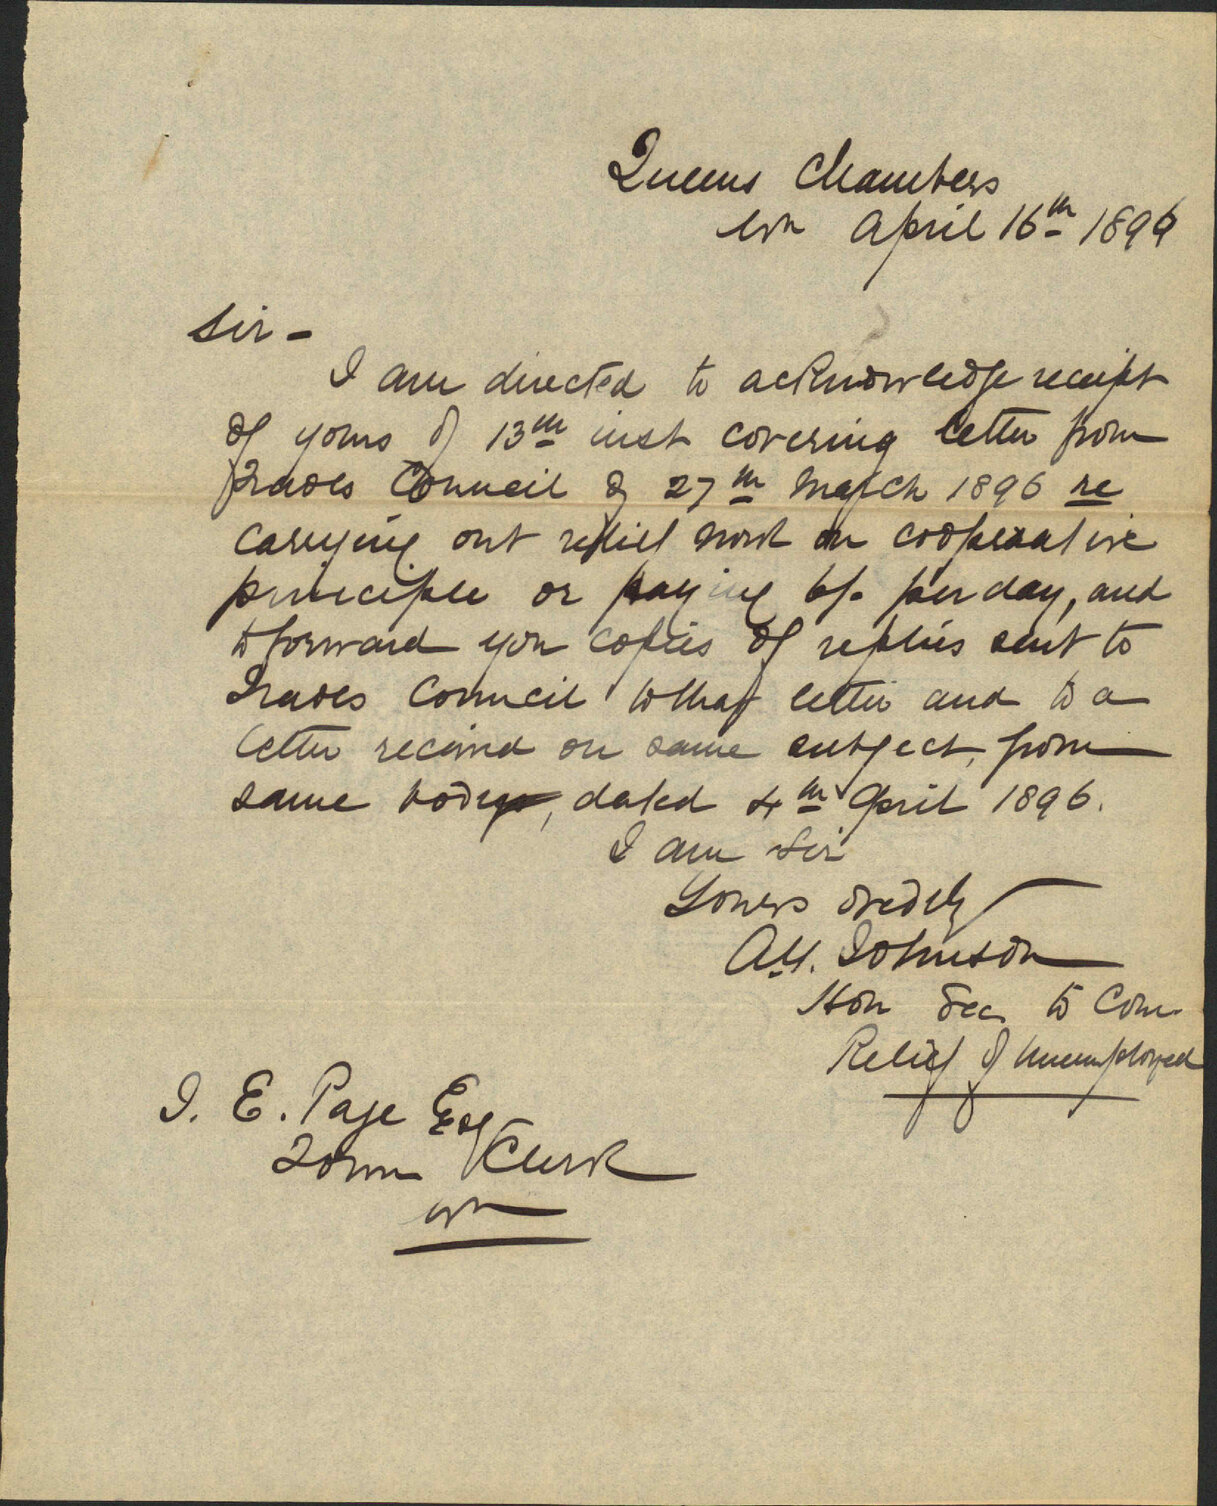 Queens Chambers
Wn April 16th 1896
Sir -
I am directed to acknowledge receipt
of yours of 13th inst covering letter from
Trades Council of 27th March 1896 re
carrying out relief work on cooperative
principle or paying 6/- per day, and
to forward you copies of replies sent to
Trades Council to that letter and to a
letter received on same subject, from
same body, dated 4th April 1896.
I am Sir
Yours obedtly
A. Johnson
Hon Sec to Com
Relief of Unemployed
J. E. Page Esq
Town Clerk
Wn